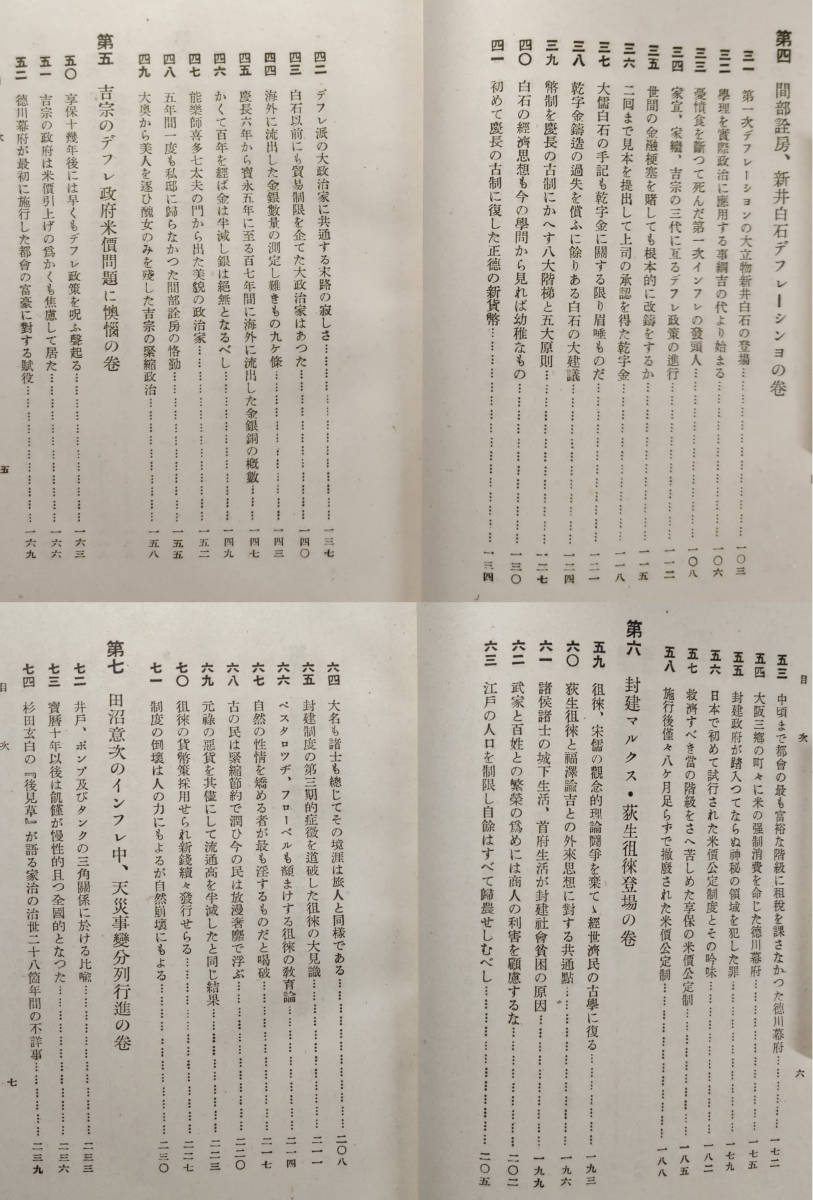 第四　間部詮房、新井白石デフレーションの巻
三一　第一次デフレーションの大立物新井白石の登場……一〇三
三二　學理を實際政治に應用する事綱吉の代より始まる……一〇六
三三　憂憤食を斷つて死んだ第一次インフレの發頭人……一〇八
三四　家宣、家繼、吉宗の三代に亙るデフレ政策の進行……一一二
三五　世間の金融梗塞を賭しても根本的に改鑄をするか……一一五
三六　二回まで見本を提出して上司の承認を得た乾字金……一一八
三七　大儒白石の手記も乾字金に關する限り眉唾ものだ……一二一
三八　乾字金鑄造の過失を償ふに餘りある白石の大建議……一二四
三九　幣制を慶長の古制にかへす八大階梯と五大原則……一二七
四〇　白石の經濟思想も今の學問から見れば幼稚なもの……一三〇
四一　初めて慶長の古制に復した正德の新貨幣……一三四
四二　デフレ派の大政治家に共通する末路の寂しさ……一三七
四三　白石以前にも貿易制限を企てた大政治家はあつた……一四〇
四四　海外に流出した金銀數量の測定し難きもの九ヶ條……一四三
四五　慶長六年から寶永五年に至る百七年間に海外に流出した金銀銅の槪數……一四七
四六　かくて百年を經ば金は半減し銀は絕無となるべし……一四九
四七　能樂師喜多七太夫の門から出た美貌の政治家……一五二
四八　五年間一度も私邸に歸らなかつた間部詮房の恪勤……一五五
四九　大奧から美人を逐ひ醜女のみを殘した吉宗の緊縮政治……一五八
第五　吉宗のデフレ政府米價問題に懊惱の卷
五〇　享保十幾年後には早くもデフレ政策を呪ふ聲起る……一六三
五一　吉宗の政府は米價引上げの爲かくも焦慮して居た……一六六
五二　德川幕府が最初に施行した都會の富豪に對する賦役……一六九
目次　五
目次　六
五三　中頃まで都會の最も富裕な階級に租稅を課さなかつた德川幕府……一七二
五四　大阪三鄕の町々に米の强制消費を命じた德川幕府……一七五
五五　封建政府が踏入つてならぬ神秘の領域を犯した罪……一七九
五六　日本で初めて試行された米價公定制度とその吟味……一八二
五七　救濟すべき當の階級をさへ苦しめた享保の米價公定制……一八五
五八　施行後僅々八ケ月足らずで撤廢された米價公定制……一八八
第六　封建マルクス・荻生徂徠登場の卷
五九　徂徠、宋儒の觀念的理論鬪爭を棄てゝ經世濟民の古學に復る……一九三
六〇　荻生徂徠と福澤諭吉との外來思想に對する共通點……一九六
六一　諸侯諸士の城下生活、首府生活が封建社會貧困の原因……一九九
六二　武家と百姓との繁榮の爲めには商人の利害を顧慮するな……二〇二
六三　江戸の人口を制限し自餘はすべて歸農せしむべし……二〇五
六四　大名も諸士も總じてその境涯は旅人と同樣である……二〇八
六五　封建制度の第三期的症徵を道破した徂徠の大見識……二一一
六六　ペスタロツヂ、フローベルも顏まけする徂徠の敎育論……二一四
六七　自然の性情を矯める者が最も淫するものだと喝破……二一七
六八　古の民は緊縮節約で潤ひ今の民は放漫奢靡で浮ぶ……二二〇
六九　元祿の惡貨を共儘にして流通高を半減したと同じ結果……二二三
七〇　徂徠の貨幣策採用せられ新錢續々發行せらる……二二七
七一　制度の倒壞は人の力にもよるが自然崩壞にもよる……二三〇
第七　田沼意次のインフレ中、天災事變分列行進の卷
七二　井戸、ポンプ及びタンクの三角關係に於ける比喩……二三三
七三　寶曆十年以後は飢饉が慢性的且つ全國的となつた……二三六
七四　杉田玄白の『後見草』が語る家治の治世二十八箇年間の不詳事……二三九
目次　七